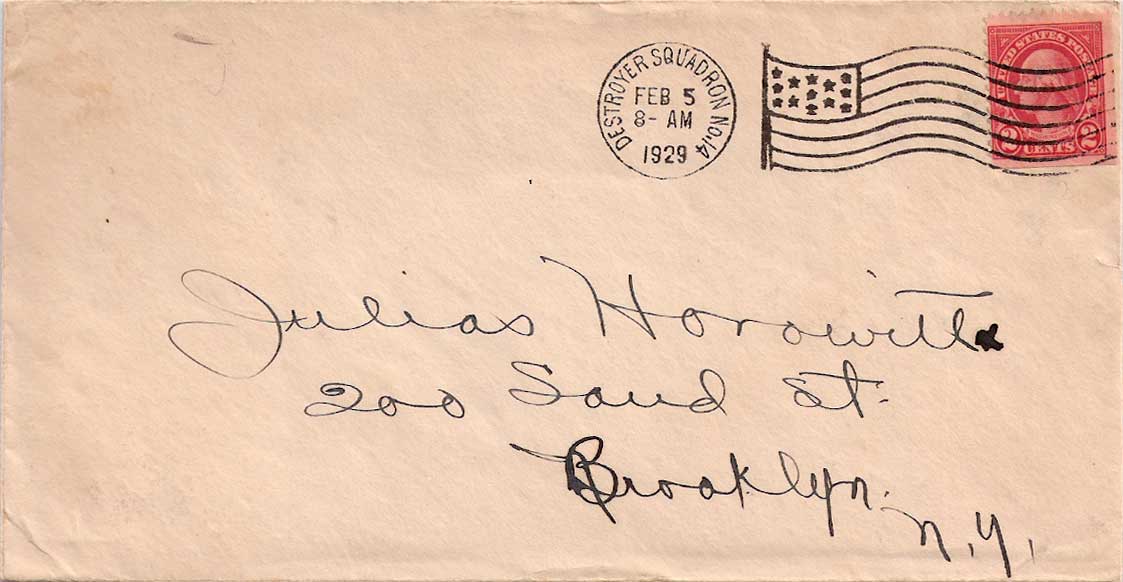 DESTROYER SQUADRON No.14
FEB 5
8- AM
1929
UNITED STATES POSTAGE
2 CENTS 2
Julias Horowitt
200 Sand St.
Brooklyn.
N.Y.